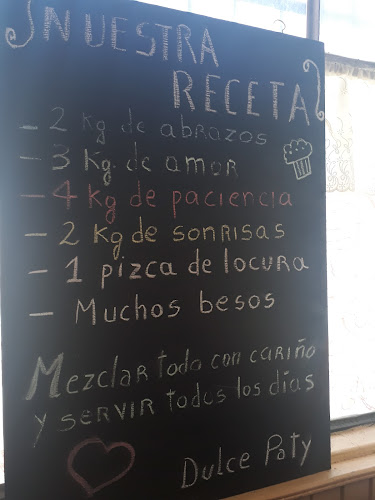 NUESTRA
RECETA
- 2 kg de abrazos
- 3 kg. de amor
- 4 kg de paciencia
- 2 kg de sonrisas
- 1 pizca de locura
- Muchos besos
Mezclar todo con cariño
y servir todos los días
Dulce Paty